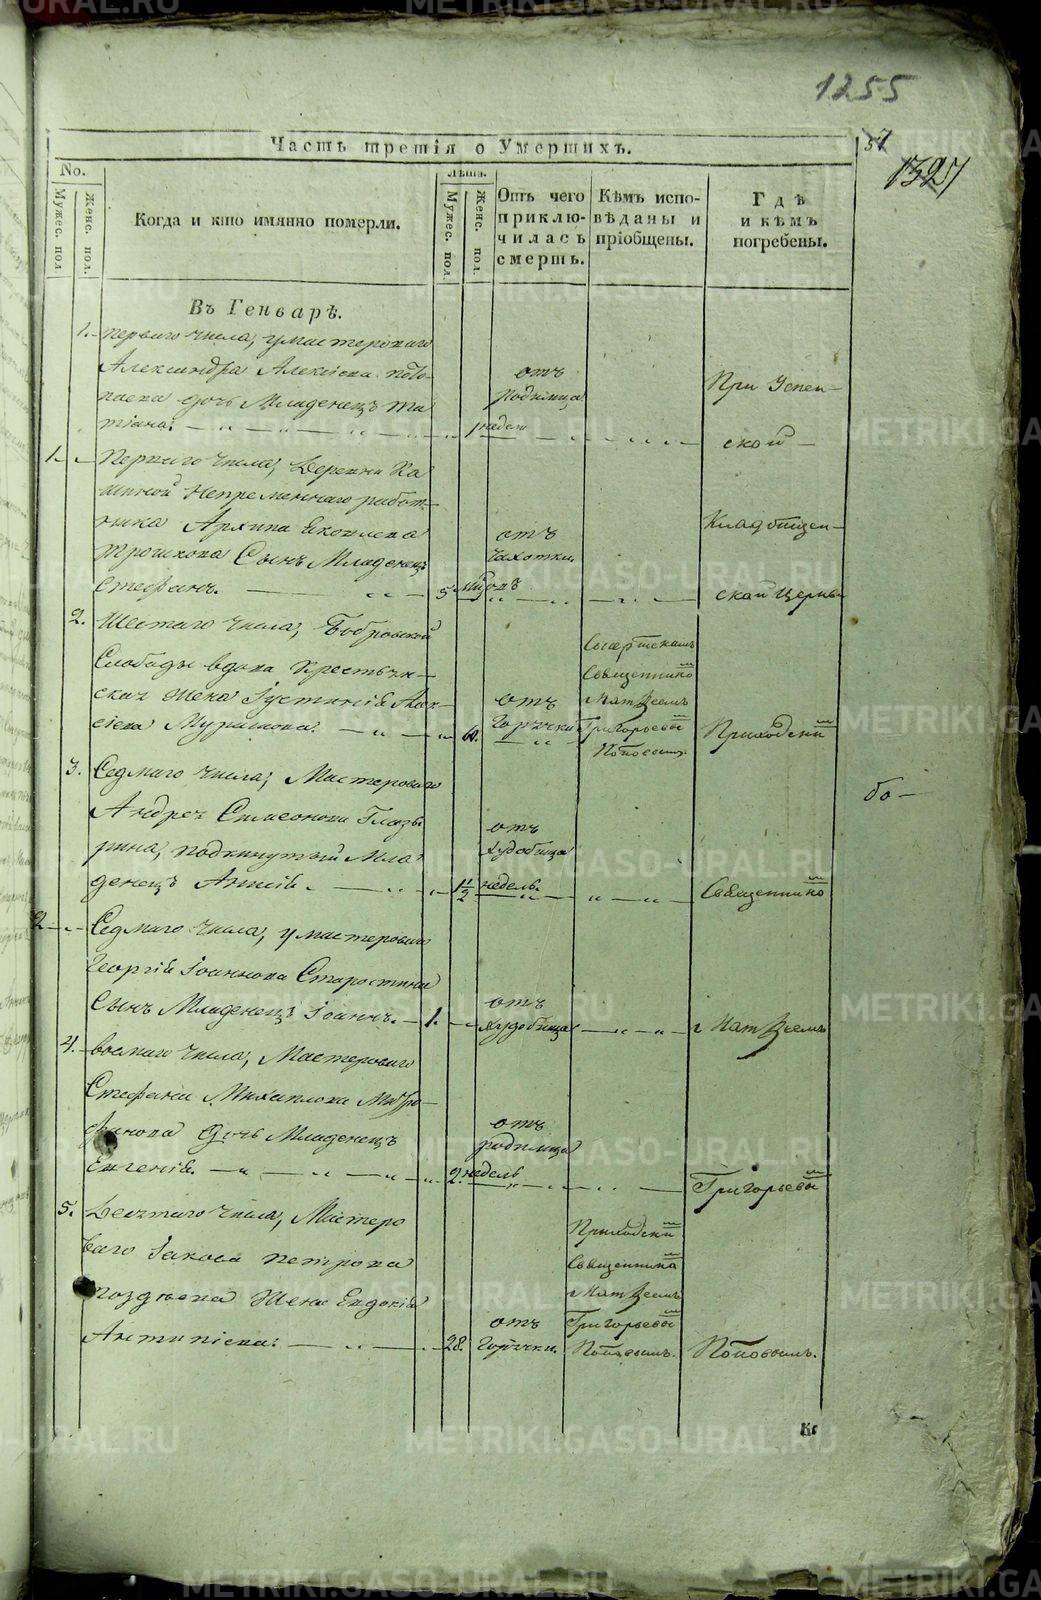 1255
Часть третія о Умершихъ.
57
1327
No.
Лѣта.
Мужес. пол.
Женс. пол.
Когда и кто имянно померли.
Мужес. пол.
Женс. пол.
Отъ чего приклю-чилась смерть.
Кѣмъ испо-вѣданы и пріобщены.
Гдѣ и кѣмъ погребены.
Въ Генварѣ.
1. перваго числа, у мастероваго
Александра Алексѣева
дочь Младенецъ Та
тіана.
1 недели
отъ
родимца
При Успен-
ской
1. Перваго числа, Деревни Ка
шиной Непременнаго работ-
ника Архипа Яковлева
Сынъ Младенецъ
Стефанъ.
5
отъ
чахотки.
Кладбищен-
ской Церкви
2. Шестаго числа, Бобровской
Слободы вдова Крестьян-
ская Жена Іустинія Алек-
сіева
60.
отъ
Горячки
Священнико
Матвеемъ
Григорьевы
Поповымъ.
Приходскій
3. Седмаго числа, Мастероваго
Андрея Симеонова Глазы
рина, подкинутый Мла
денецъ
1 1/2 недель.
отъ
худобища
Священнико
бо-
2. Седмаго числа, у мастероваго
Георгія Іоаннова Старостина
Сынъ Младенецъ Іоаннъ. 1.
отъ
худобища
Матвеемъ
4. восмаго числа, Мастероваго
Стефана Михаилова Митро-
фанова дочь Младенецъ
Евгенія.
2. недель
отъ
родимца
Григорьевы
5. Девятаго числа, Мастеро
ваго Іакова Петрова
Позднева Жена Евдокія
Антипіева.
28.
отъ
Горячки.
Приходски
Священнико
Матвеемъ
Григорьевы
Поповымъ.
Поповымъ.
METRIKI.GASO-URAL.RU